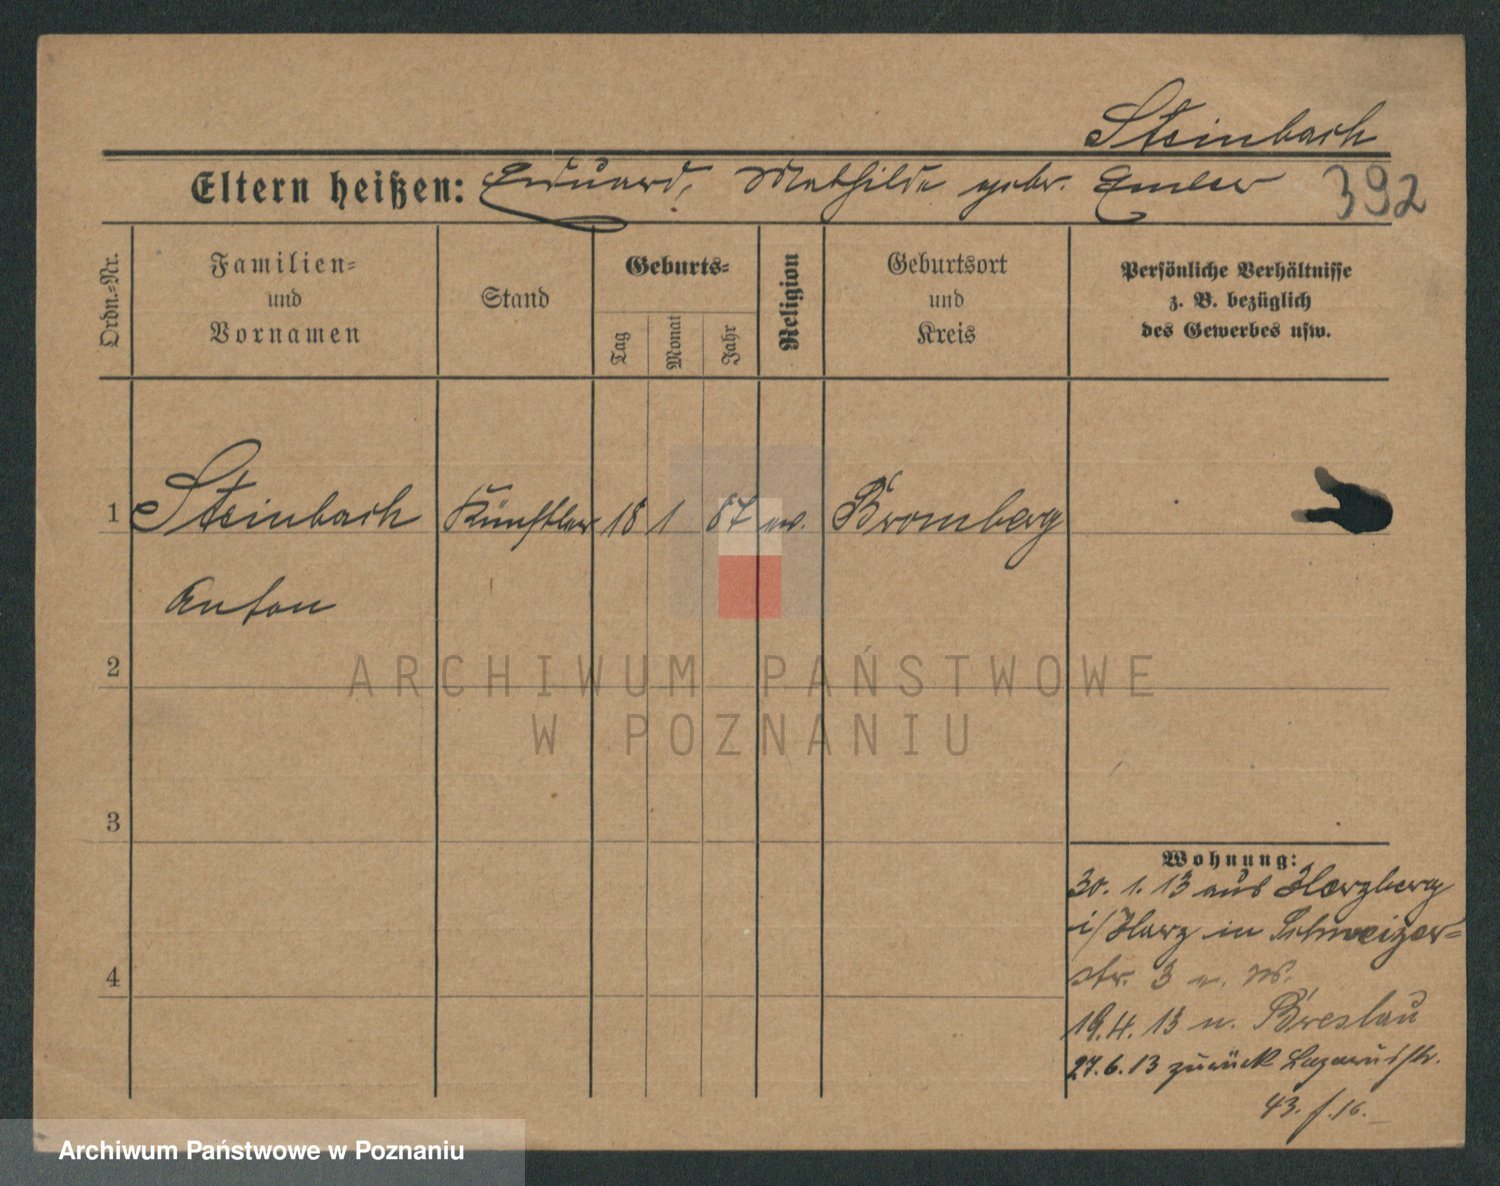 Steinbach
Eltern heißen: Eduard, Mathilde gebr.
392
Ordn.=Nr.
Familien=
und
Vornamen
Stand
Geburts=
Tag
Monat
Jahr
Religion
Geburtsort
und
Kreis
Persönliche Verhältnisse
z. B. bezüglich
des Gewerbes usw.
1 Steinbach Künstler 18 1 87 ev. Bromberg
Anton
2
ARCHIWUM PAŃSTWOWE
W POZNANIU
3
4
Wohnung:
30. 1. 13 aus Herzberg
i/Harz in Schweizer=
str. 3
19. 4. 13 n. Breslau
27. 6. 13 zurück Lazarusstr.
43.
Archiwum Państwowe w Poznaniu